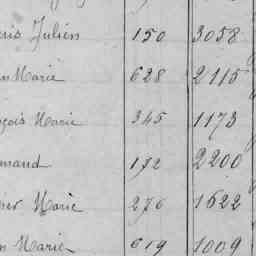 Julien 150 3058
Marie 628 2115
Marie 345 1173
172 2200
Marie 276 1622
Marie 619 1009